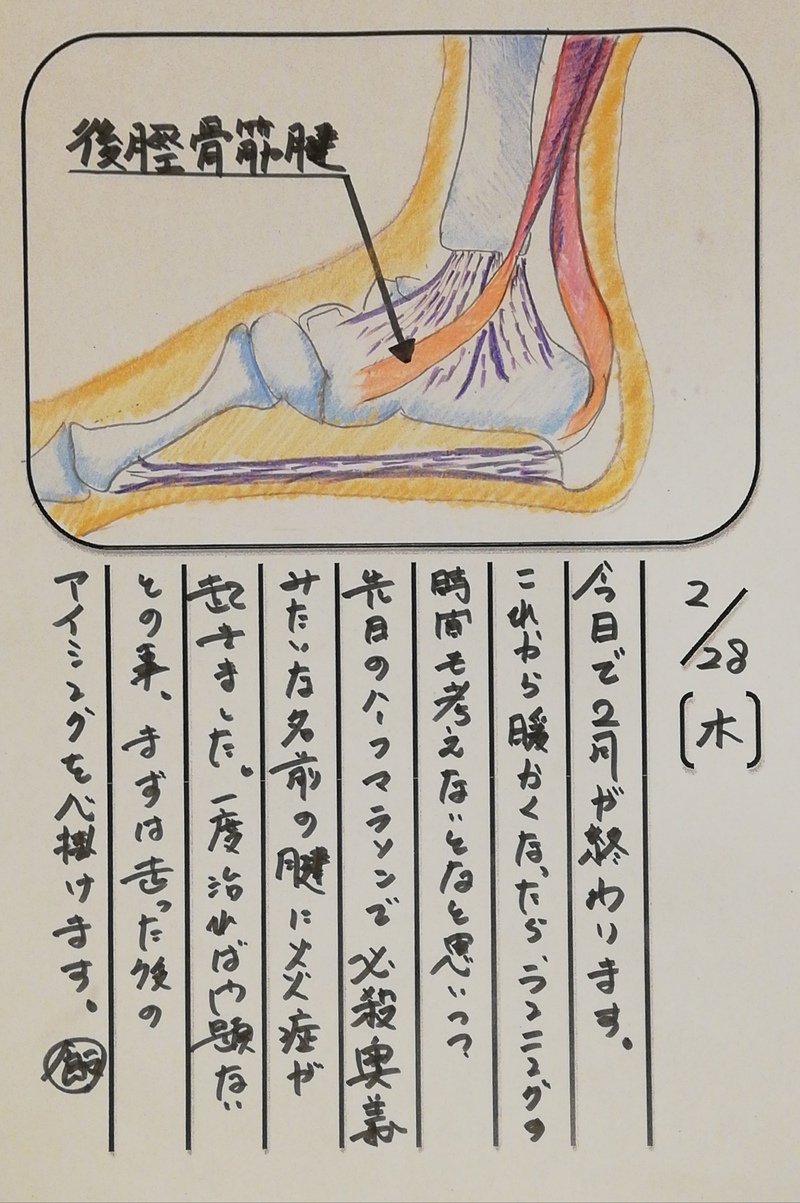 後脛骨筋腱
2/28
[木]
今日で2月が終わります。
これから暖かくなったら、ランニングの
時間も考えないとなと思いつつ
先日のハーフマラソンで必殺奥義
みたいな名前の腱に炎症が
起きました。一度治れば問題ない
との事、まずは走った後の
アイシングを心掛けます。